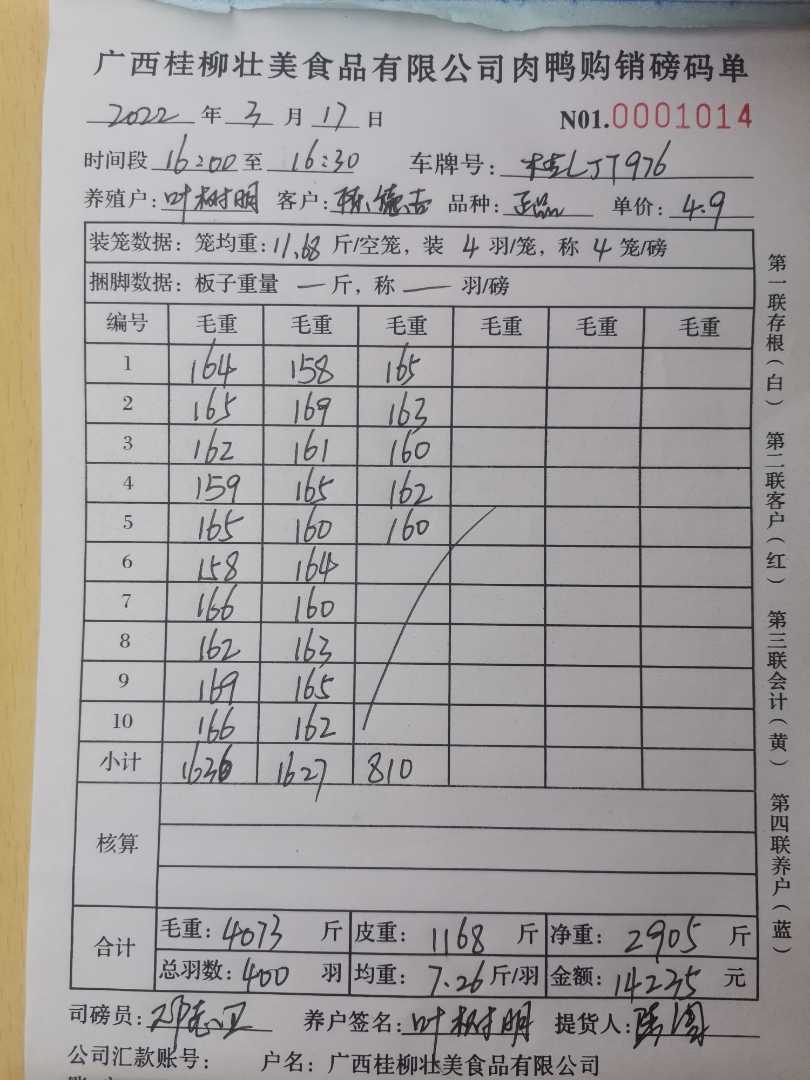 广西桂柳壮美食品有限公司肉鸭购销磅码单
2022 年 3 月 17 日 N01.0001014
时间段 16:00 至 16:30 车牌号: 桂LJT976
养殖户: 叶树明 客户: 德吉 品种: 正品 单价: 4.9
装笼数据: 笼均重: 11.68 斤/空笼, 装 4 羽/笼, 称 4 笼/磅
捆脚数据: 板子重量 — 斤, 称 — 羽/磅
编号 毛重 毛重 毛重 毛重 毛重 毛重
1 164 158 165
2 165 169 163
3 162 161 160
4 159 165 162
5 165 160 160
6 158 164
7 166 160
8 162 163
9 169 165
10 166 162
小计 1636 1627 810
核算
合计
毛重: 4073 斤 皮重: 1168 斤 净重: 2905 斤
总羽数: 400 羽 均重: 7.26 斤/羽 金额: 14235 元
司磅员: 养户签名: 叶树明 提货人:
公司汇款账号: 户名: 广西桂柳壮美食品有限公司
第一联存根(白) 第二联客户(红) 第三联会计(黄) 第四联养户(蓝)